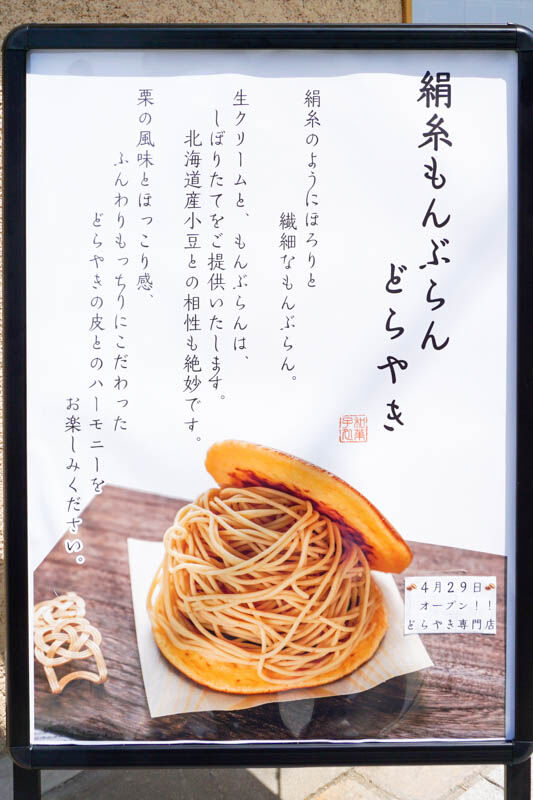 絹糸もんぶらん
どらやき
絹糸のようにほろりと
繊細なもんぶらん。
生クリームと、もんぶらんは、
しぼりたてをご提供いたします。
北海道産小豆との相性も絶妙です。
栗の風味とほっこり感、
ふんわりもっちりにこだわった
どらやきの皮とのハーモニーを
お楽しみください。
4月29日
オープン！！
どらやき専門店